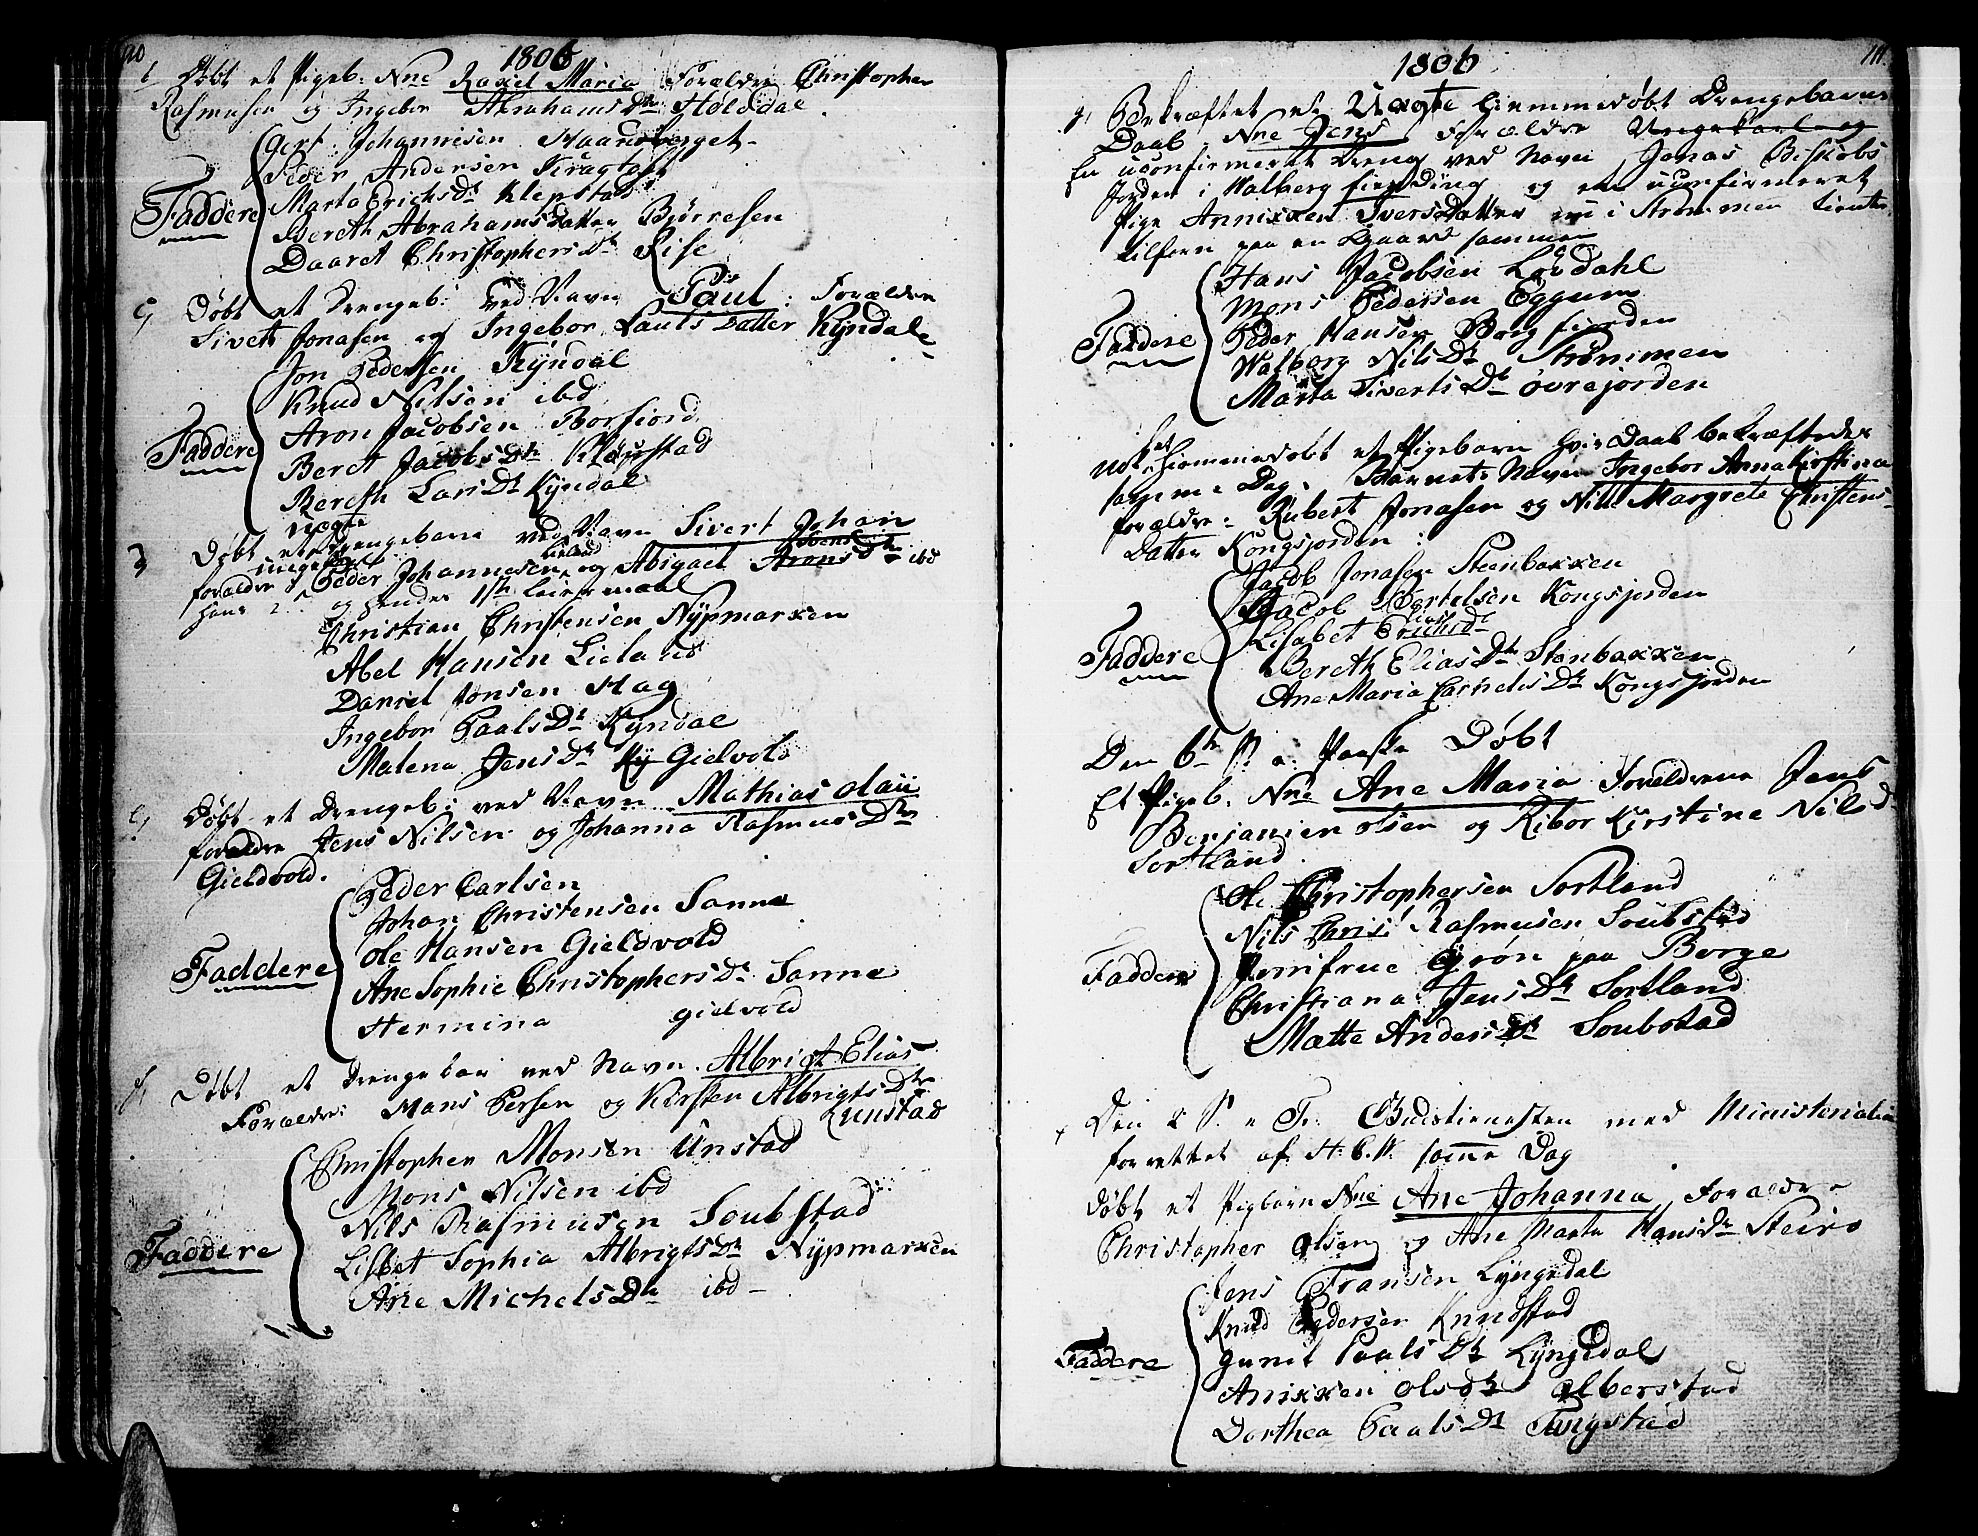 1806
Døbt et Pigeb. Nne Raxel Maria Forældre Christopher
Rasmusen og Ingebor AbrahamsDtr Holdal
Gert Johannesen Haandberget
Peder Andersen
Marta ErichsDt Klepstad
Faddere
Bereth Abrahamsdatter Bjørresen
Daaret ChristophersDt Rise
Døbt et Drengeb: ved Navn Paul: Forældre
Sivert Jonasen og Ingebor Pauls Datter Kyndale
Jon Pedersen Kyndal
Knud Nilsen ibd
Aron Jacobsen Borfiord
Faddere
Beret JacobsDtr
Bereth LarsDt Kyndal
uægte
3 Døbt et Drengebarn ved Navn Sivert Johan
forældre Peder Johannesen og Abigael AronsDtr ibd
Hans 2 og hendes 1ste Leiermaal
Christian Christensen Nypmarken
Abel Hansen Lieland
Daniel Jonsen Hag
Ingebor PaalsDt Kyndal
Malena JensDt Ky Gieldvold
Døbt et Drengeb: ved Navn Mathias Olaii
forældre Jens Nilsen og Johanna RasmusDtr
Gieldvold.
Peder Carlsen
Johan Christensen Sanna
Ole Hansen Gieldvold
Faddere
Ane Sophie ChristophersDt Sanna
Hermina Gieldvold
Døbt et Drengebar ved Navn Albrigt Elias
Forældre: Mons Persen og Kirsten AlbrigtsDtr
Unstad
Christopher Monsen Unstad
Mons Nilsen ibd
Nils Rasmusen Soubstad
Faddere
Lisbet Sophia AlbrigtsDt Nypmarken
Ane MichelsDtr ibd
1806
Bekræftet et Uægte hiemmedøbt Drengebarns
Daab Nne Jens Forældre Ungekarl og
En uconfirmeret Dreng ved Navn Jonas Biskobs
Jorden i Walberg fierding og en uconfirmeret
Pige Annikken Iversdatter nu i Strømmen tiente
tilforn paa en Gaard sammen
Hans Jacobsen Løvdahl
Mons Pedersen Eggum
Faddere
Peder Hansen Borgfiorden
Walborg NilsDt Strømmen
Marta SivertsDt Øvrejorden
hiemmedøbt et Pigebarn hvis Daab bekræftedes
samme Dag. Barnets Navn Ingebor Anna Kirstina
forældre: Rubert Jonasen og Nille Margrete Christens
Datter Kongsjorden:
Jacob Jonasen Steenbakken
Jacob Bertelsen Kongsjorden
Lisabet ErichsDt
Faddere
Bereth EliasDtr Stenbakken
Ane Maria CornelisDt Kongsjorden
Den 6te S. e. Paaske Døbt
Et Pigeb. Nne Ane Maria Forældrene Jens
Benjamien Olsen og Ribor Kirstine NilsD
Sortland
Ole Christophersen Sortland
Nils Chris! Rasmusen Soubstad
Faddere
Jomfrue Grøn paa Borge
Christiana JensDt Sortland
Mætte AndersDt Soubstad
Den 2 S. e. Tr. Gudstienesten med Ministerialia
forrettet af H.C.W. samme Dag
Døbt et Pigbarn Nne Ane Johanna, Forældre
Christopher Olsen og Ane Marta HansDtr Steiro
Jens Fransen Lyngedal
Knud Pedersen Knudstad
Faddere
Gunil PaalsDt Lyngedal
Anikken OlsDtr Alberstad
Dorthea PaalsDt Tangstad